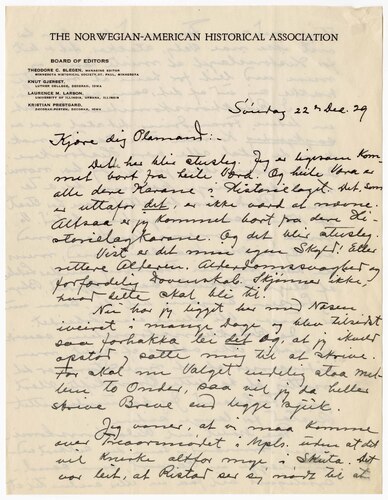 THE NORWEGIAN-AMERICAN HISTORICAL ASSOCIATION
BOARD OF EDITORS
THEODORE C. BLEGEN, MANAGING EDITOR
MINNESOTA HISTORICAL SOCIETY, ST. PAUL, MINNESOTA
KNUT GJERSET,
LUTHER COLLEGE, DECORAH, IOWA
LAURENCE M. LARSON,
UNIVERSITY OF ILLINOIS, URBANA, ILLINOIS
KRISTIAN PRESTGARD,
DECORAH-POSTEN, DECORAH, IOWA
Söndag 22 Dec. 29
Kjære dig Ølamand:-
Det her blir stusleg. Jg er ligesom kom
met bort fra heile Vord. Og heile Vora er
alle dere Karane i Historielaget. Det, som
er uttafor det, er ikke værd at nevne.
Altsaa er jg kommet bort fra dere Hi-
storielagskarane. Og det blir stusleg.
Vest er det min egen Skyld! Eller
rettere Alderen. Alderdomssvaghed og
forfærdelig Dovenskab. Skjønner ikke
hvad dette skal bli til.
Nu har jg ligget her med Nasen
iveiret i mange Dage og blev tilsidst
saa forbakka lei det og, at jg skuld
opstod, satte mig til at skrive.
For skal nu Valget endelig staa mel-
lem to Onder, saa vil jg da heller
skrive Breve end ligge sjuk.
Jeg vaaner, at vi maa komme
over i Mpls. uden at det
vil knirke altfor mye i Skuta. Det
var leit, at Ristad ser sig nødt til at